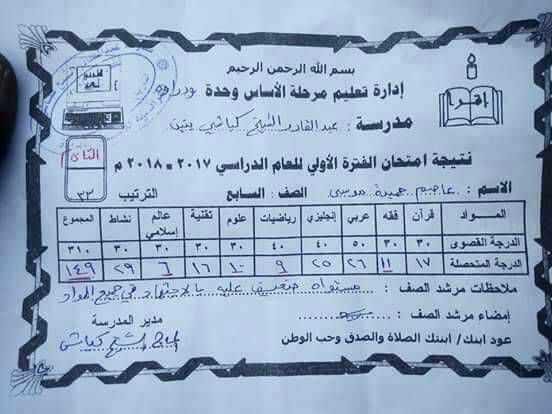 بسم الله الرحمن الرحيم
إدارة تعليم مرحلة الأساس وحدة
اقرأ
مدرسة : عبد القادر الشيخ كباشي بنين
نتيجة امتحان الفترة الأولي للعام الدراسي ٢٠١٧ - ٢٠١٨ م
الاسم : عاصم حميدة موسى الصف : السابع الترتيب ٣٢
المـــواد قرآن فقه عربي إنجليزي رياضيات علوم تقنية عالم إسلامي نشاط المجموع
الدرجة القصوى ٣٠ ٣٠ ٥٠ ٤٠ ٤٠ ٣٠ ٣٠ ٣٠ ٣٠ ٣١٠
الدرجة المتحصلة ١٧ ١١ ٢٦ ٢٥ ٩ ١٠ ١٦ ٦ ٢٩ ١٤٩
ملاحظات مرشد الصف : مستواه ضعيف عليه بالاجتهاد في جميع المواد
إمضاء مرشد الصف :
مدير المدرسة
عود ابنك/ ابنتك الصلاة والصدق وحب الوطن